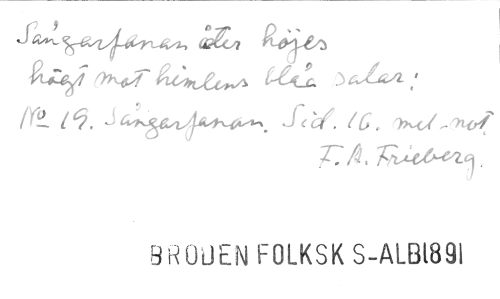 Sångarfanan åter höjes
högt mot himlens blåa salar:
No 19. Sångarfanan. Sid. 16. mel-not.
F. A. Frieberg.
BRODEN FOLKSK S-ALB1891